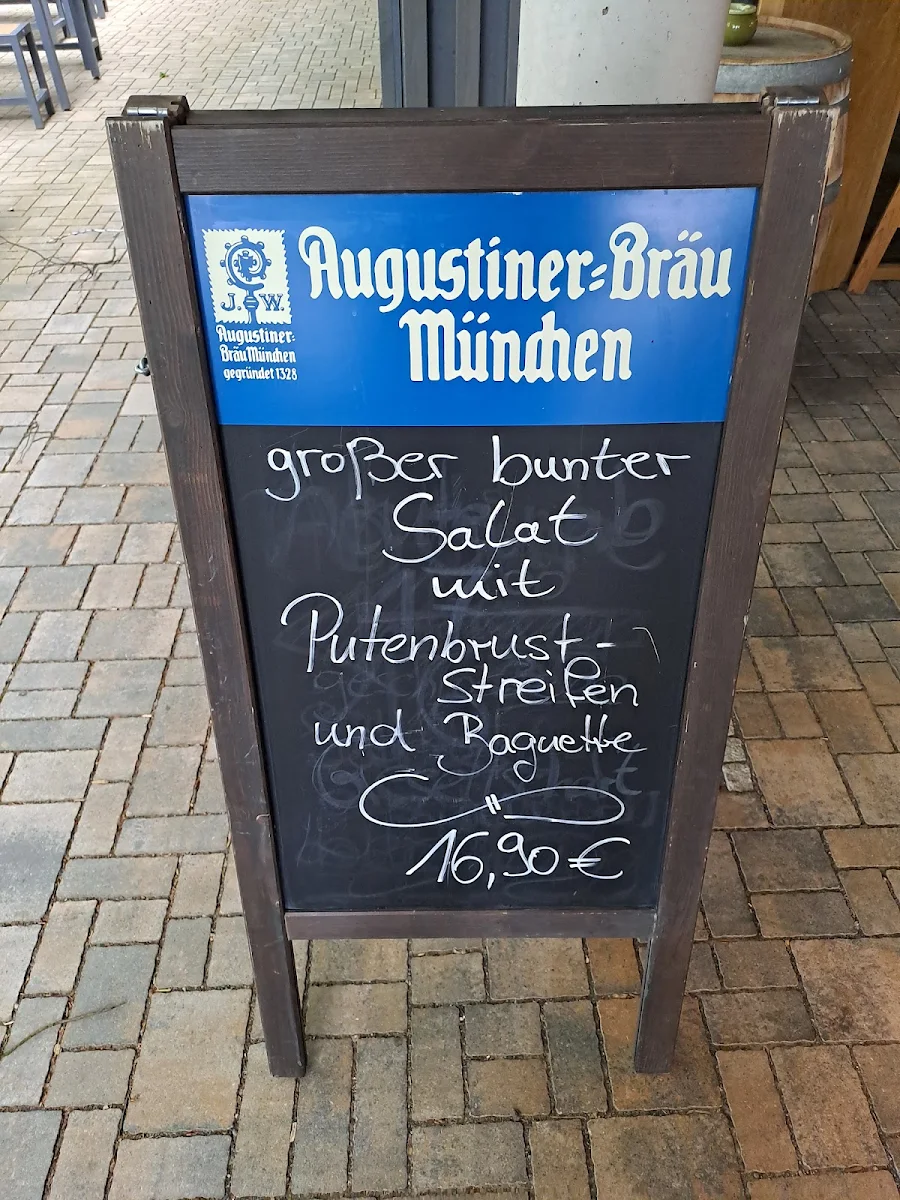 J. W.
Augustiner-
Bräu München
gegründet 1328
Augustiner-Bräu
München
großer bunter
Salat
mit
Putenbrust-
Streifen
und Baguette
16,90 €